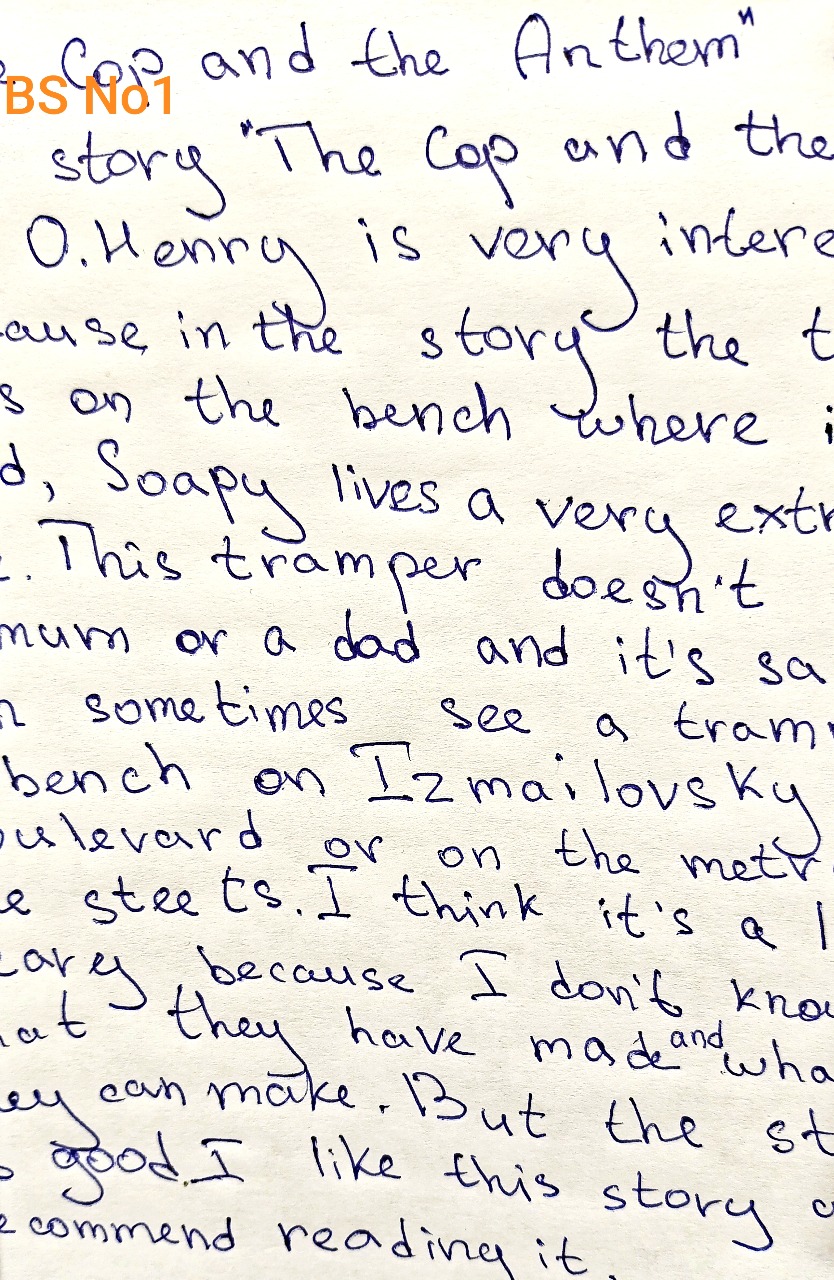 e Cop and the Anthem"
BS No1
story "The Cop and the
O.Henry is very intere
ause in the story the t
s on the bench where i
d, Soapy lives a very extr
. This tramper doesn't
mum or a dad and it's sa
n sometimes see a tram
bench on Izmailovsky
oulevard or on the metr
e steets. I think it's a l
cary because I don't kno
hat they have made and wha
ey can make. But the st
s good. I like this story a
ecommend reading it.